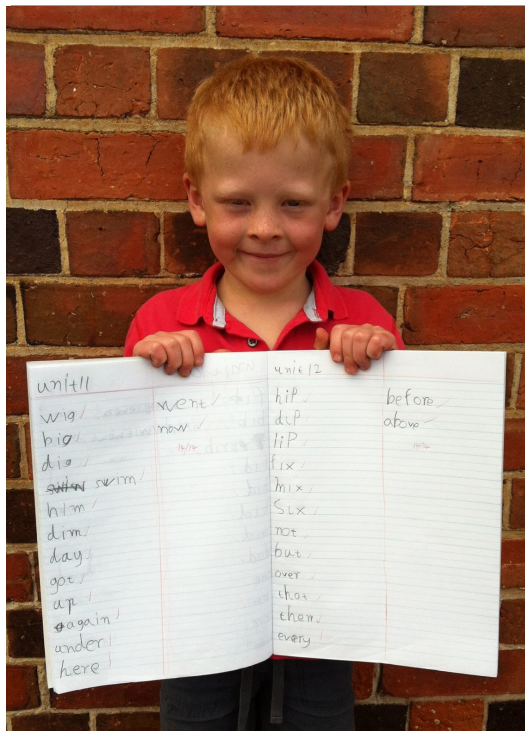 unit 11
wig
big
dig
swim swim
him
dim
day
got
up
again
under
here
went
now
14/14
unit 12
hip
dip
lip
fix
mix
Six
not
but
over
that
them
every
before
above
14/14